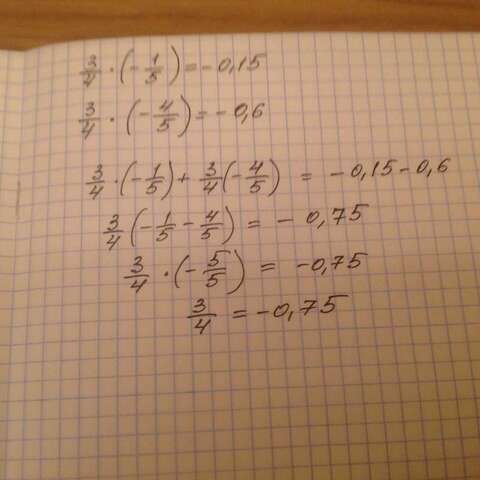 3/4 · (-1/5) = -0,15
3/4 · (-4/5) = -0,6
3/4 · (-1/5) + 3/4 (-4/5) = -0,15 - 0,6
3/4 (-1/5 - 4/5) = -0,75
3/4 · (-5/5) = -0,75
3/4 = -0,75